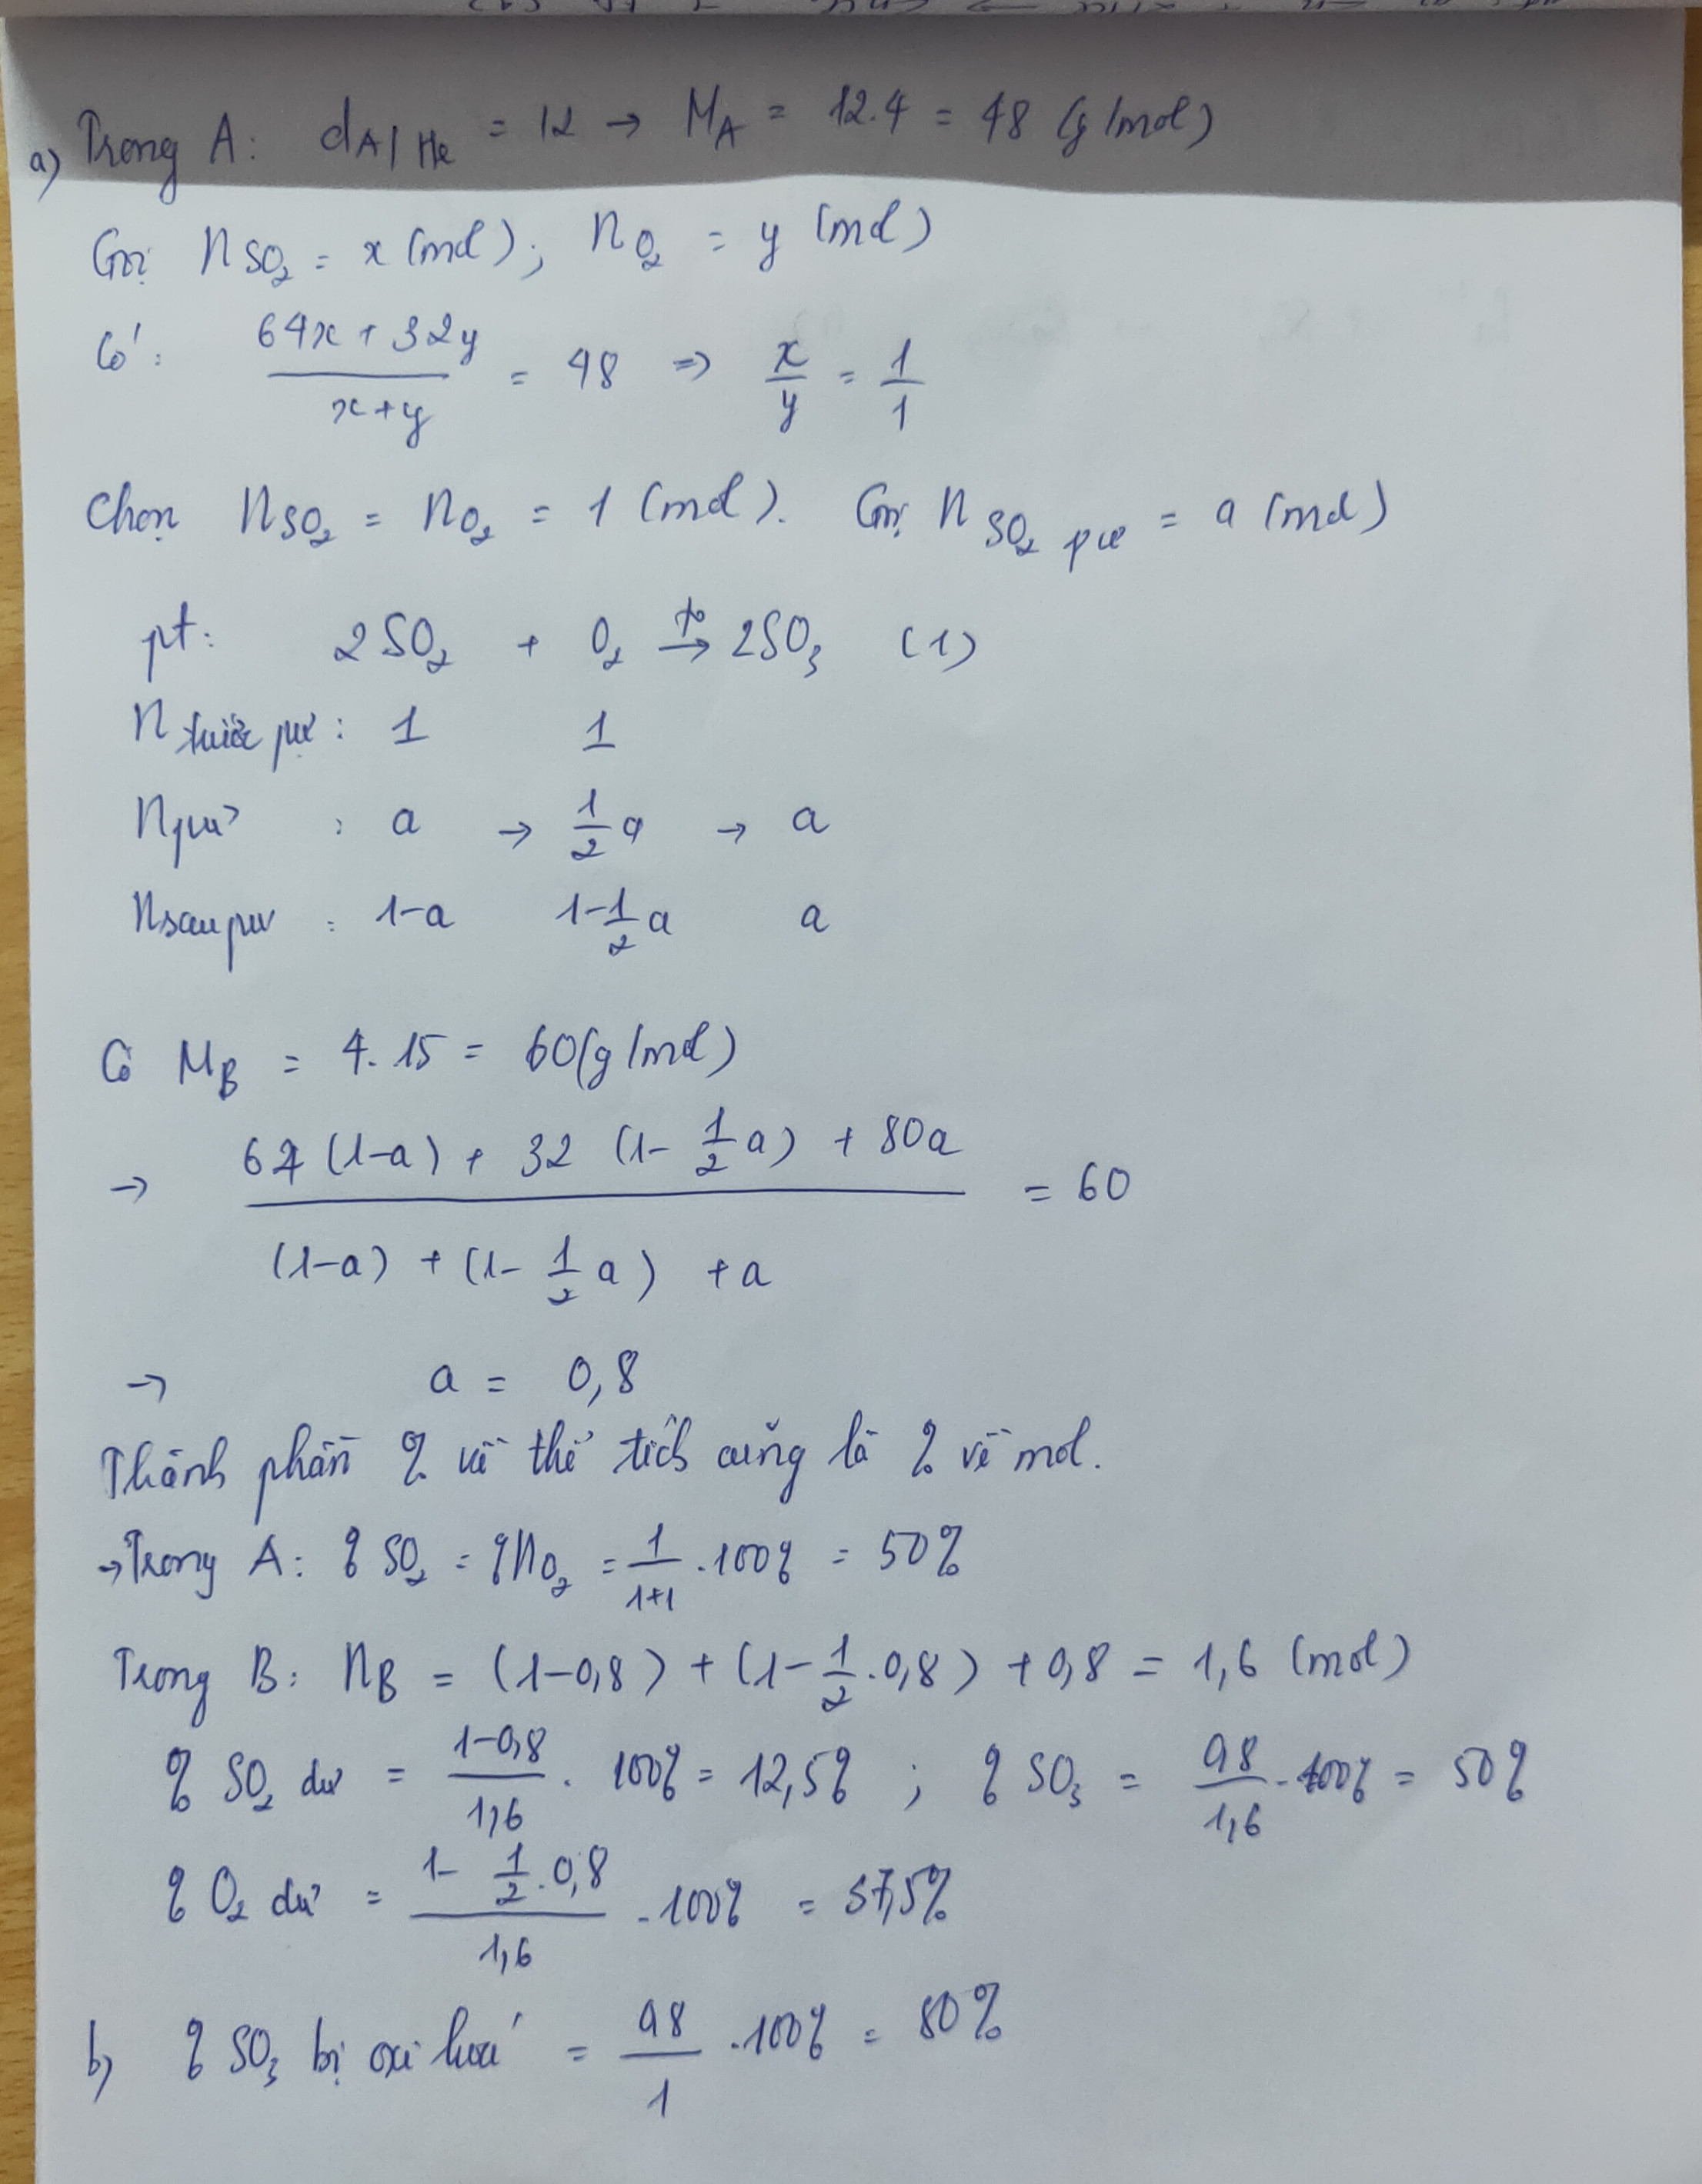 a) Trong A: dA/He = 12 → MA = 12.4 = 48 (g/mol)
Gọi nSO2 = x (mol); nO2 = y (mol)
Có: (64x + 32y)/(x+y) = 48 => x/y = 1/1
Chọn nSO2 = nO2 = 1 (mol). Gọi nSO2 pư = a (mol)
pt: 2SO2 + O2 →(t°) 2SO3 (1)
n trước pư: 1 1
npư : a → 1/2 a → a
nsau pư : 1-a 1-1/2 a a
Có MB = 4.15 = 60(g/mol)
→ (64 (1-a) + 32 (1- 1/2 a) + 80a)/((1-a) + (1- 1/2 a) + a) = 60
→ a = 0,8
Thành phần % về thể tích cũng là % về mol.
→Trong A: % SO2 = %nO2 = 1/(1+1) .100% = 50%
Trong B: nB = (1-0,8) + (1- 1/2 .0,8) + 0,8 = 1,6 (mol)
% SO2 dư = (1-0,8)/1,6 . 100% = 12,5% ; % SO3 = 0,8/1,6 .100% = 50%
% O2 dư = (1- 1/2 .0,8)/1,6 .100% = 37,5%
b) % SO3 bị oxi hoá = 0,8/1 .100% = 80%